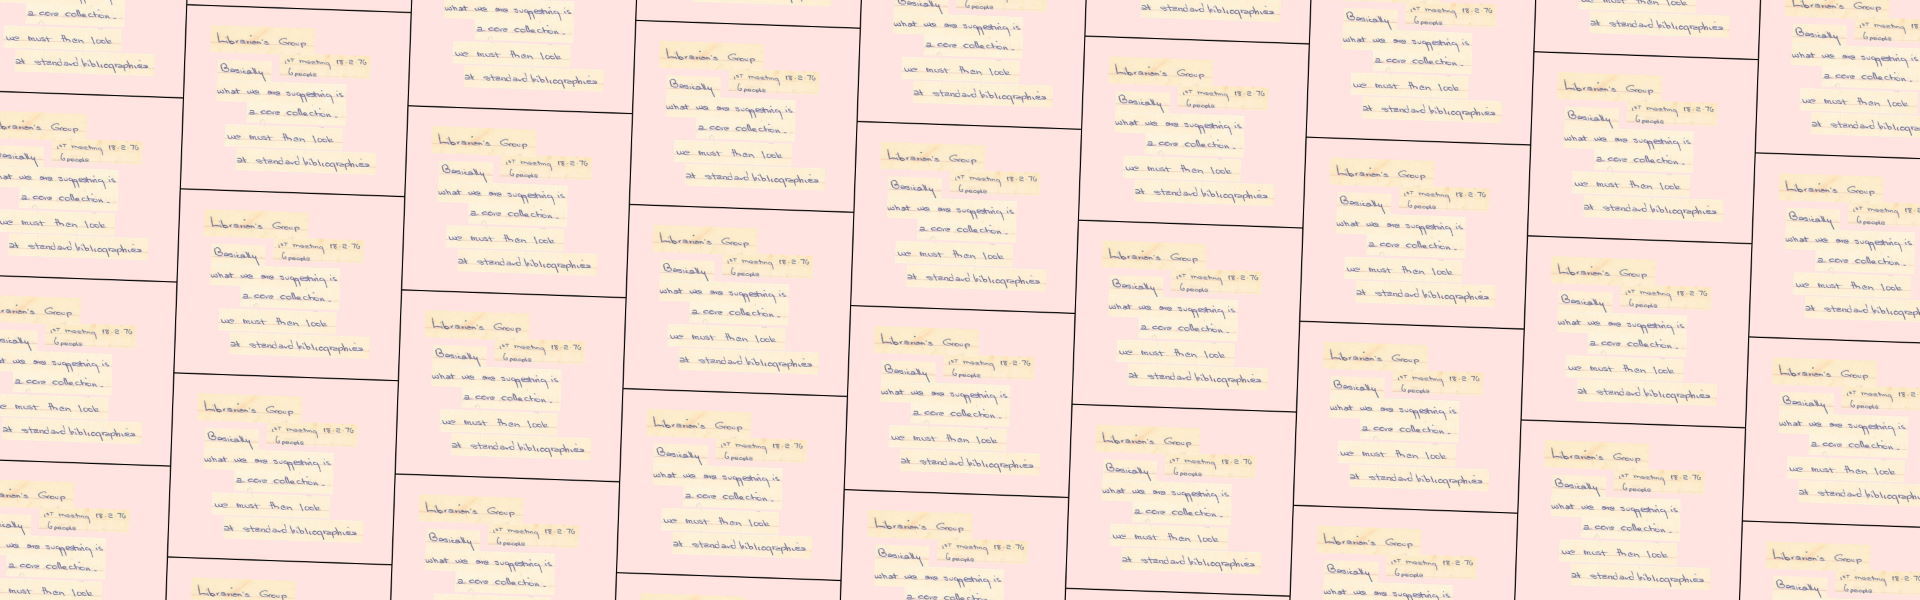 Librarian's Group
1st meeting 18-2-76
Basically 6 people
what we are suggesting is
a core collection.
we must then look
at standard bibliographies